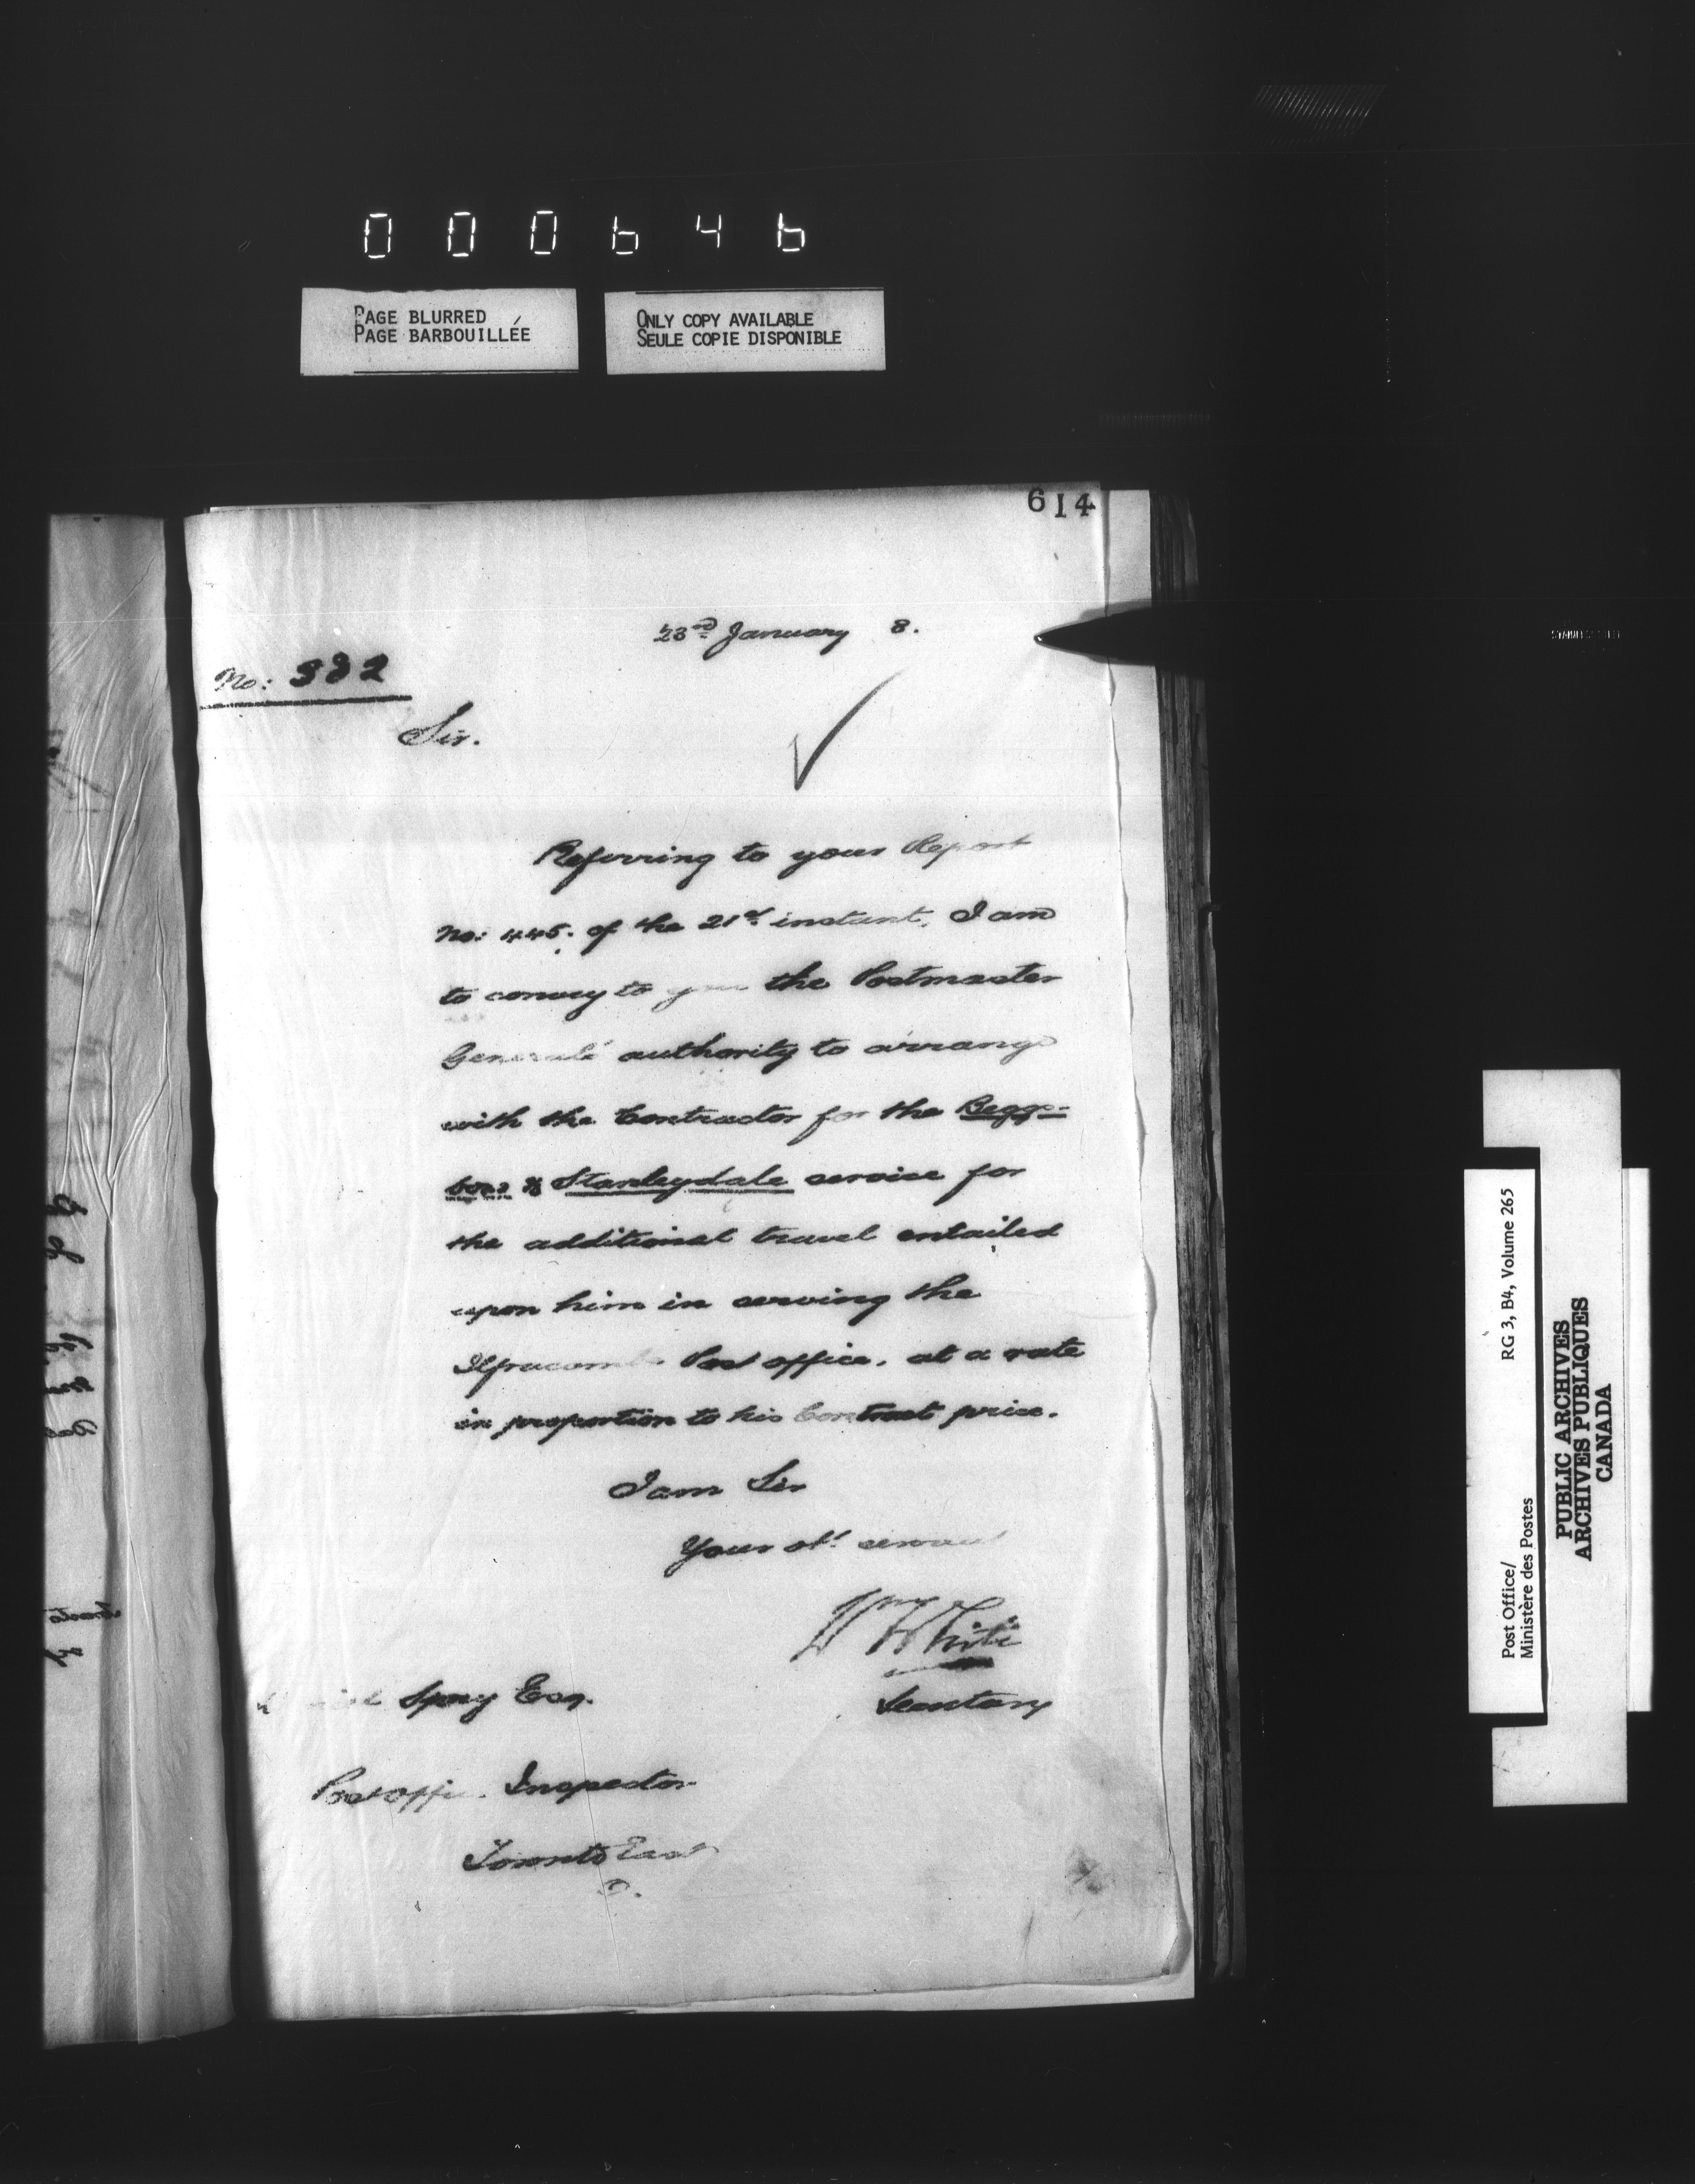 000646
PAGE BLURRED
PAGE BARBOUILLÉE
ONLY COPY AVAILABLE
SEULE COPIE DISPONIBLE
614
23rd January 8.
No: 382
Sir.
Referring to your Report
No: 445. of the 21st instant, I am
to convey to you the Postmaster
General's authority to arrange
with the Contractor for the Beggs-
boro & Stanleydale service for
the additional travel entailed
upon him in serving the
Ilfracombe Post office, at a rate
in proportion to his Contract price.
I am Sir
Your obt. servant
Wm White
Secretary
Spry Esq.
Post Office Inspector
Toronto East
Post Office/
Ministère des Postes
RG 3, B4, Volume 265
PUBLIC ARCHIVES
ARCHIVES PUBLIQUES
CANADA